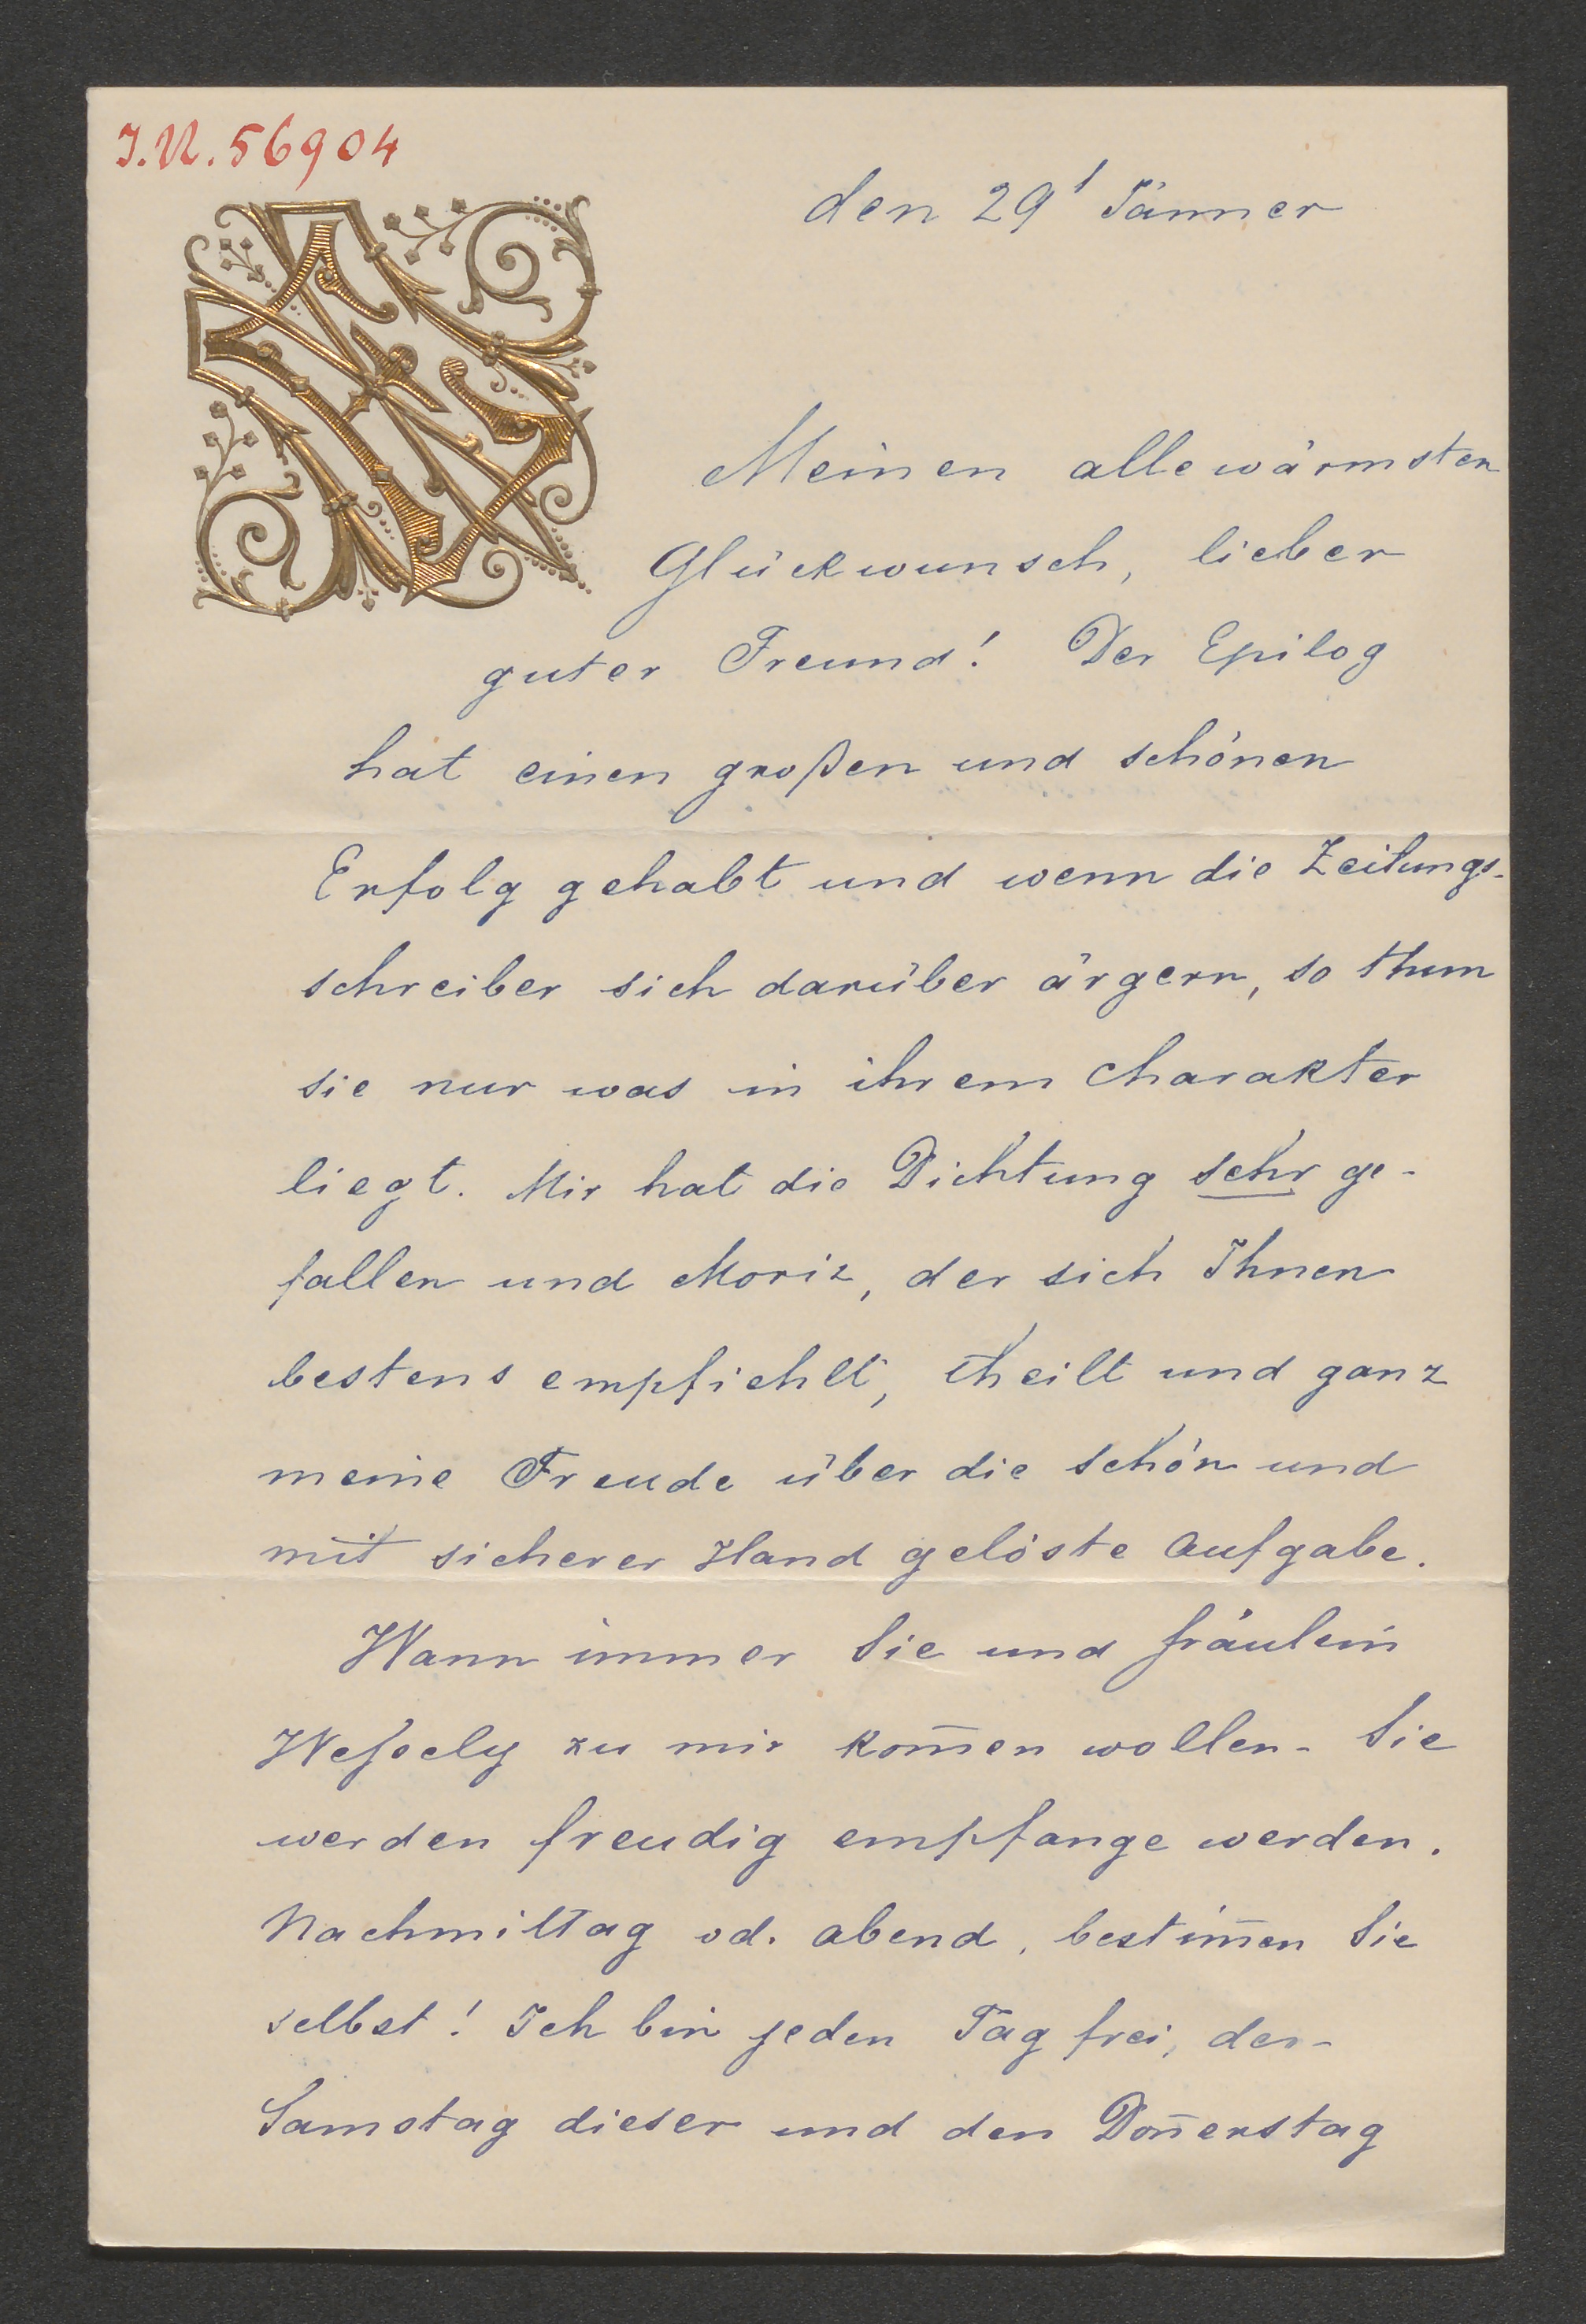 I.N. 56904
den 29' Jänner
Meinen allewärmsten
Glückwunsch, lieber
guter Freund! Der Epilog
hat einen großen und schönen
Erfolg gehabt und wenn die Zeitungs-
schreiber sich darüber ärgern, so thun
sie nur was in ihrem Charakter
liegt. Mir hat die Dichtung sehr ge-
fallen und Moriz, der sich Ihnen
bestens empfiehlt, theilt und ganz
meine Freude über die schön und
mit sicherer Hand gelöste Aufgabe.
Wann immer Sie und Fräulein
Weßely zu mir kom̄en wollen - Sie
werden freudig empfange werden.
Nachmittag od. abend, bestim̄en Sie
selbst! Ich bin jeden Tag frei, der-
Samstag dieser und den Don̄erstag